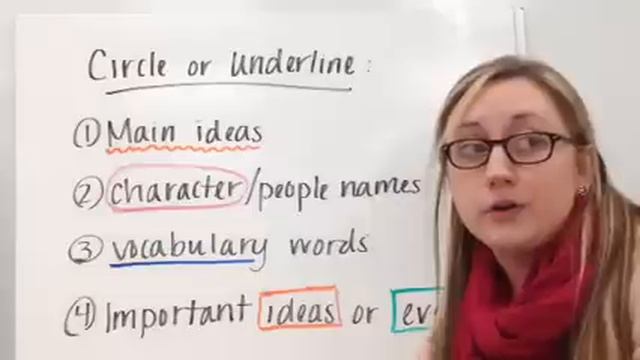 Circle or Underline:
① Main ideas
② character/people names
③ vocabulary words
④ Important ideas or